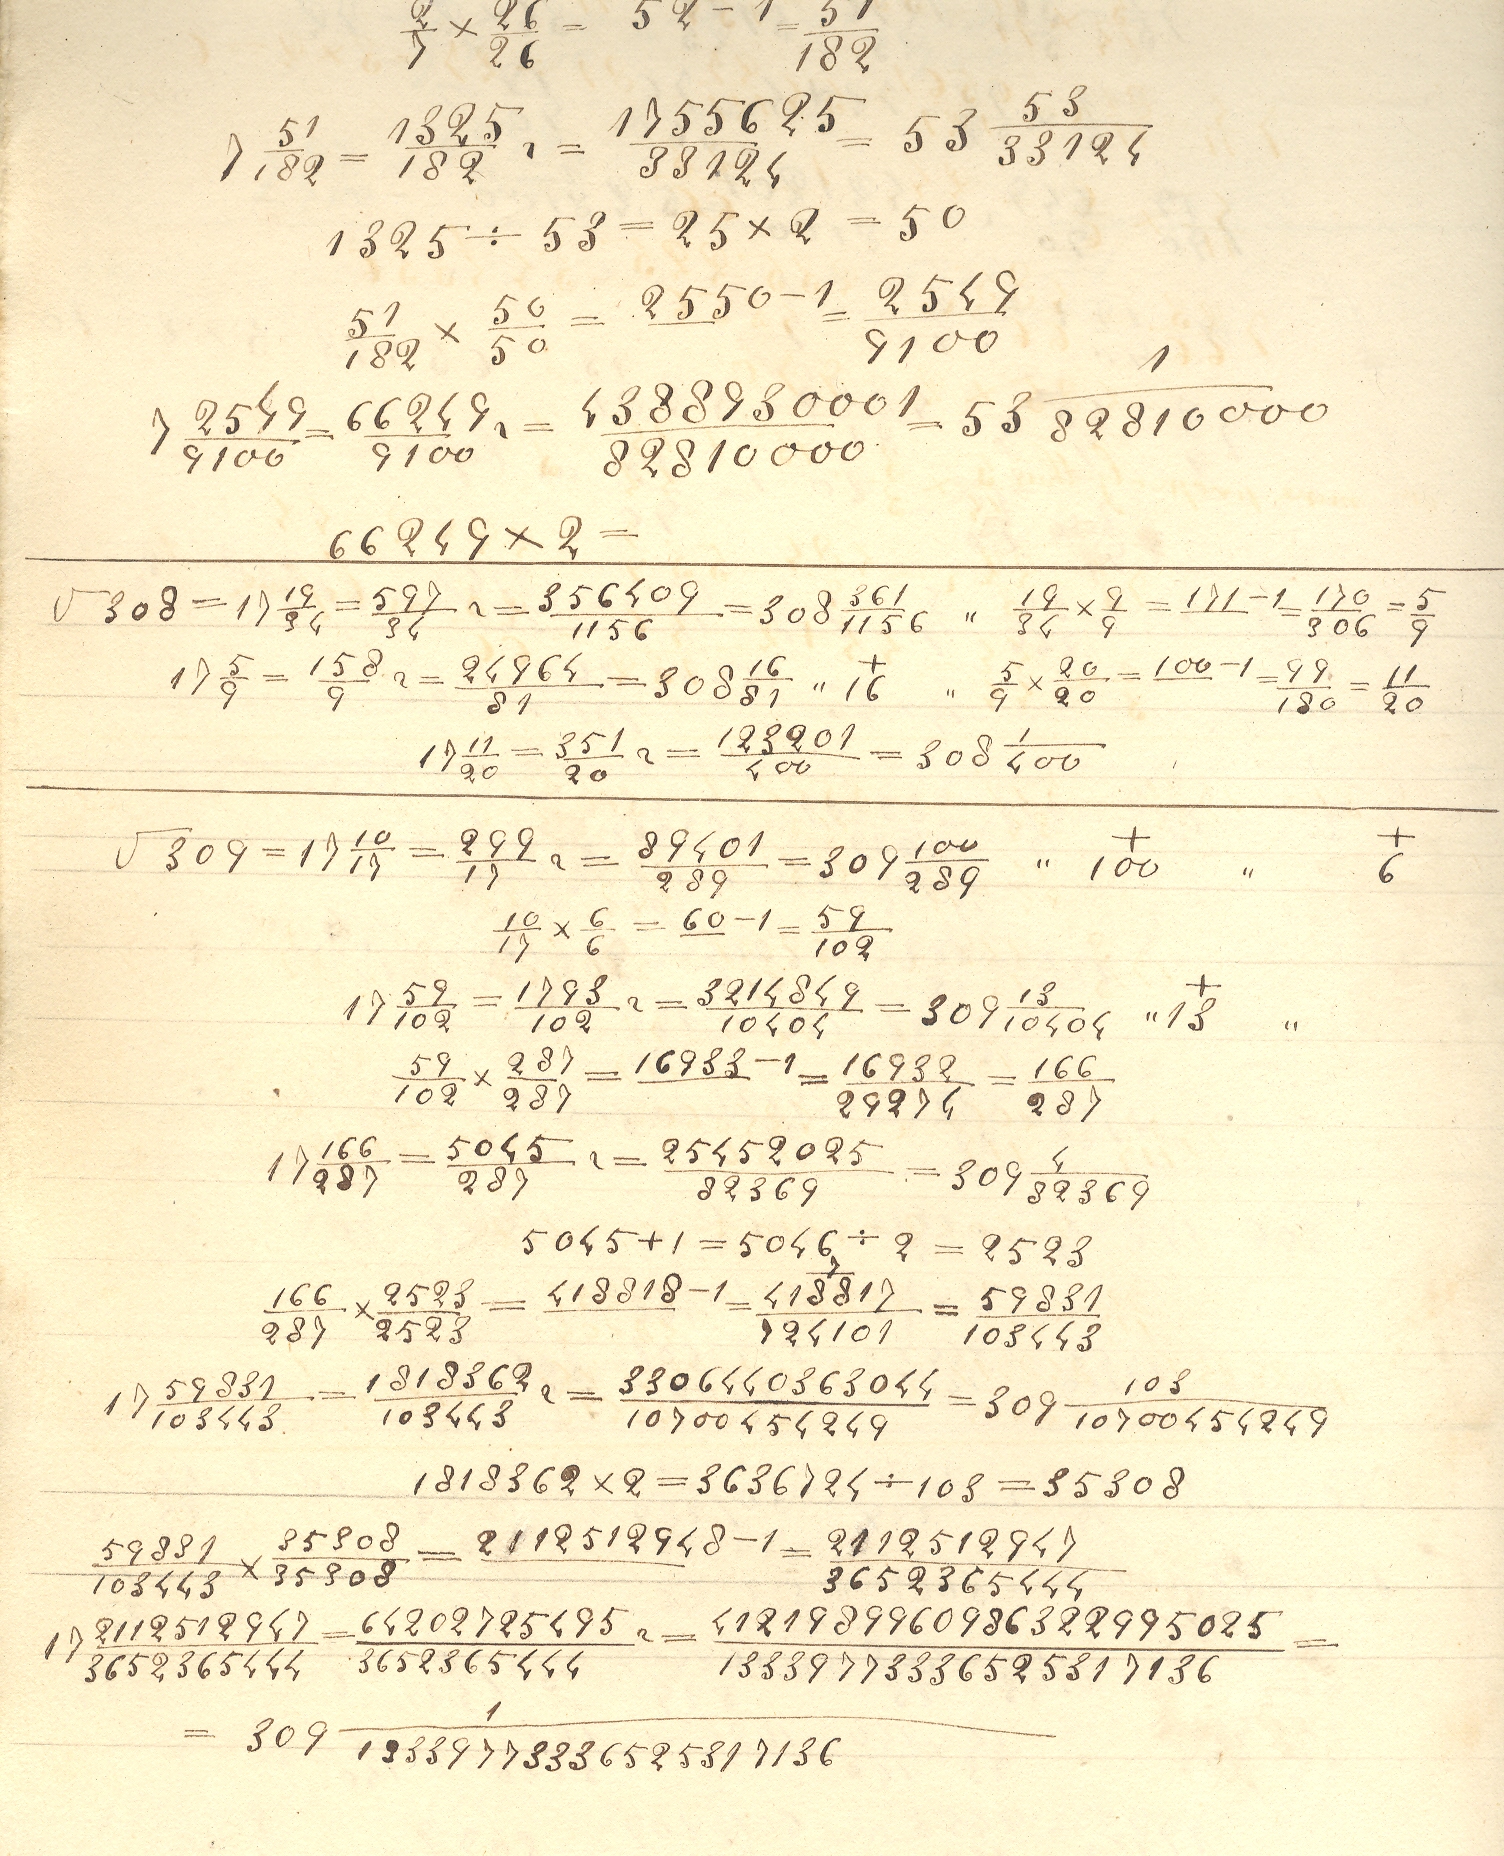 2/7 × 26/26 = 52 - 1 = 51/182
7 51/182 = 1325/182 2 = 1755625/33124 = 53 53/33124
1325 ÷ 53 = 25 × 2 = 50
51/182 × 50/50 = 2550 - 1 = 2549/9100
7 2549/9100 = 66249/9100 2 = 4388930001/82810000 = 53 1/82810000
66249 × 2 =
√308 = 17 19/34 = 597/34 2 = 356409/1156 = 308 361/1156 " 19/34 × 9/9 = 171 - 1 = 170/306 = 5/9
17 5/9 = 158/9 2 = 24964/81 = 308 16/81 " +/16 " 5/9 × 20/20 = 100 - 1 = 99/180 = 11/20
17 11/20 = 351/20 2 = 123201/400 = 308 1/400
√309 = 17 10/17 = 299/17 2 = 89401/289 = 309 100/289 " +/100 " +/6
10/17 × 6/6 = 60 - 1 = 59/102
17 59/102 = 1793/102 2 = 3214849/10404 = 309 13/10404 " +/13 "
59/102 × 287/287 = 16933 - 1 = 16932/29274 = 166/287
17 166/287 = 5045/287 2 = 25452025/82369 = 309 4/82369
5045 + 1 = 5046 ÷ 2 = 2523
7
166/287 × 2523/2523 = 418818 - 1 = 418817/724101 = 59831/103443
17 59831/103443 = 1818362/103443 2 = 3306440363044/10700454249 = 309 103/10700454249
1818362 × 2 = 3636724 ÷ 103 = 35308
59831/103443 × 35308/35308 = 2112512948 - 1 = 2112512947/3652365444
17 2112512947/3652365444 = 64202725495/3652365444 2 = 4121989960986322995025/13339773336525317136 =
= 309 1/13339773336525317136